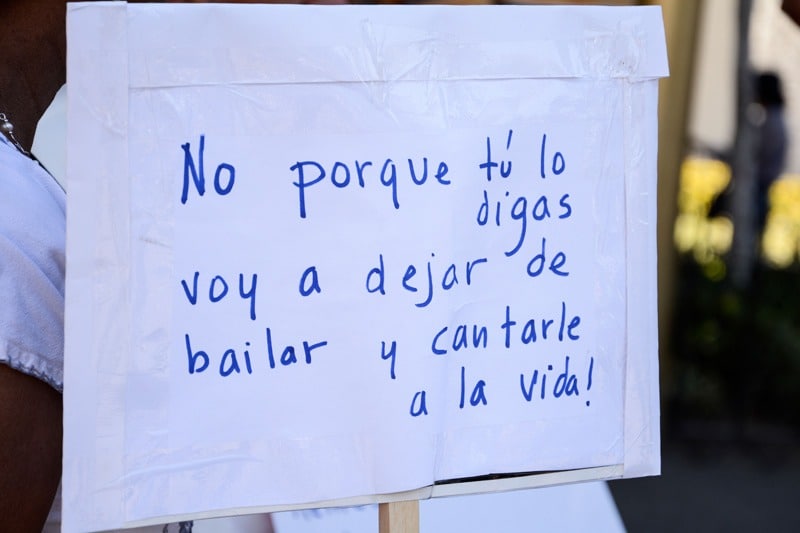 No porque tú lo
digas
voy a dejar de
bailar y cantarle
a la vida!